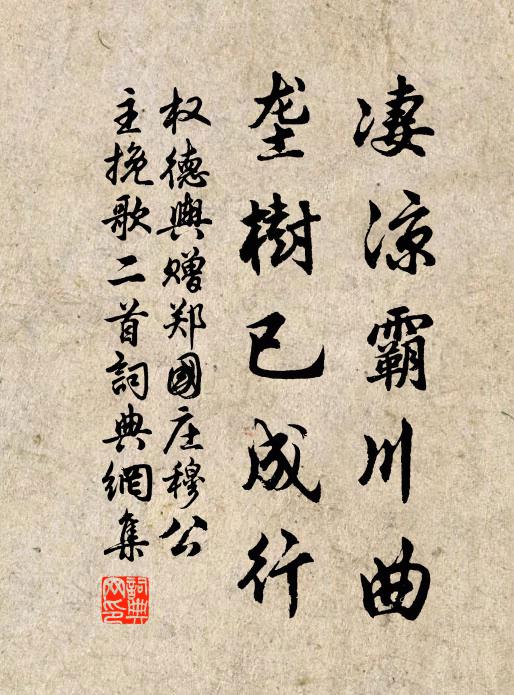 凄涼霸川曲
垄樹已成行
权德輿赠郑國庄穆公
主挽歌二首詞典網集
詞典
网印